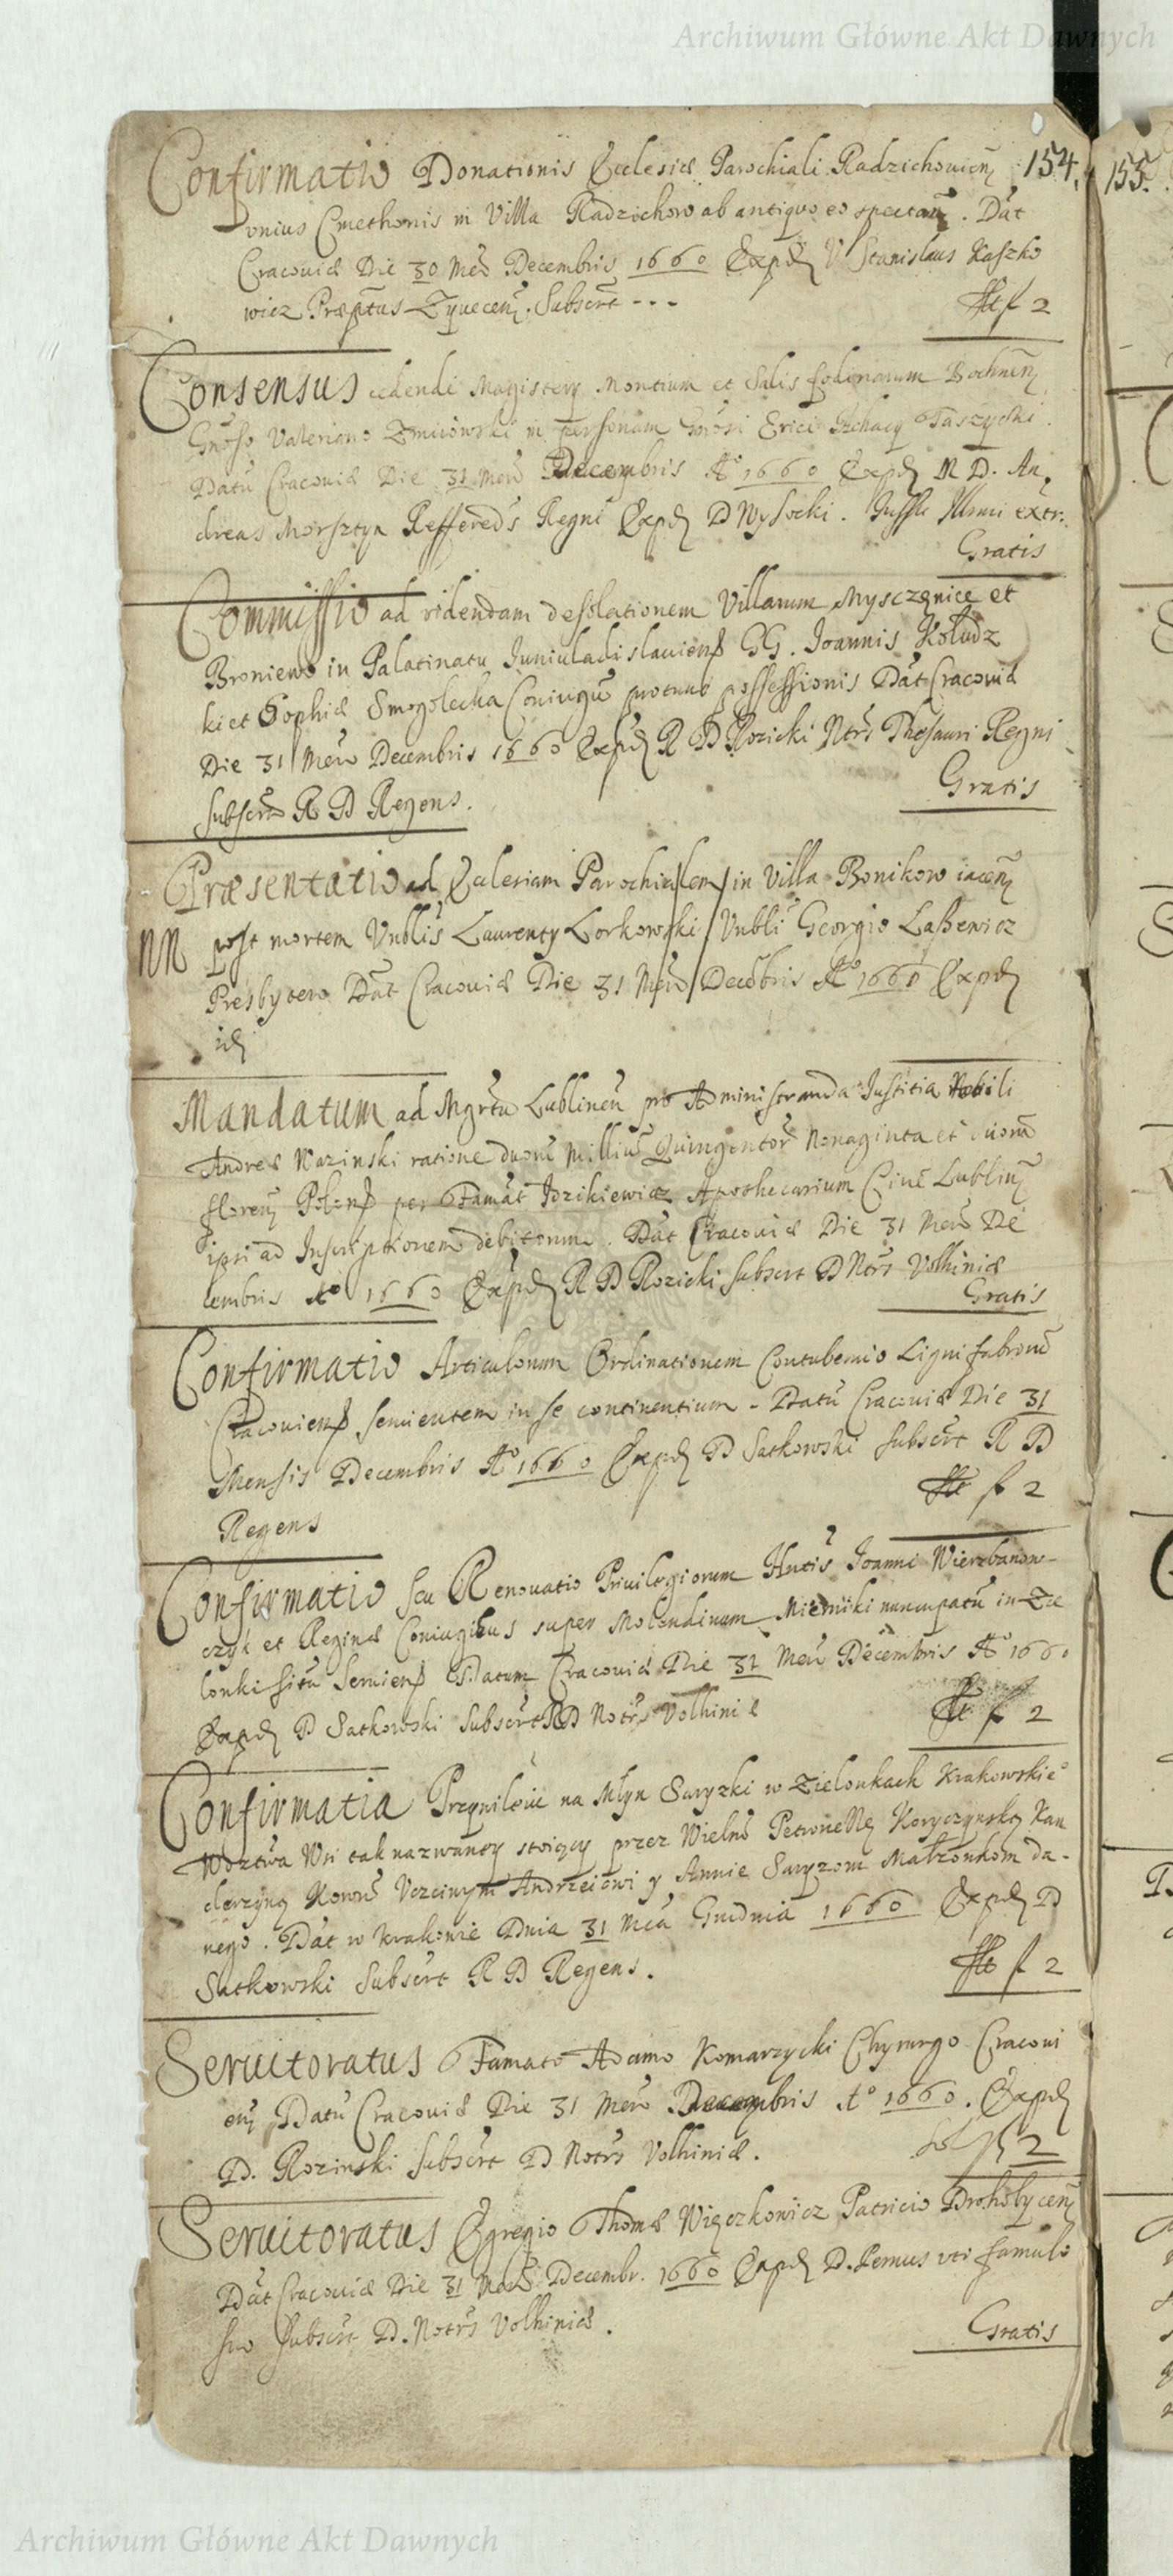 Archiwum Główne Akt Dawnych
154.
155.
Confirmatio Donationis Ecclesiæ Parochiali Radzichouien̄
unius Cmethonis in Villa Radzichow ab antiquo eo spectan̄. Dāt
Cracouiæ Die 30 Men̄ Decembris 1660 Expd V Stanislaus Kaszko
wicz Præptus Zyuecen̄. Subscrt - - -
f 2
Consensus cedendi Magistery Montium et Salis fodinarum Bochnen̄
Gnoso Valeriano Zmiiowski in personam Gnosi Erici Taszycki
Datū Cracouiæ Die 31 Men̄ Decembris Aº 1660 Expd M D. An
dreas Morsztyn Refferēds Regni Expd D Wysocki. Jussu Illmi extr.
Gratis
Commissio ad videndam desolationem Villarum Mysczęnice et
Broniewo in Palatinatu Juniuladislauiens GG. Joannis Kołudz
ki et Sophiæ Smogolecka Coniugū possessionis Dāt Cracouiæ
Die 31 Men̄ Decembris 1660 Expd R D Rozicki Ntrs Thesauri Regni
subscrt R D Regens.
Gratis
Præsentatio ad Ecclesiam Parochialem in Villa Bonikow iacen̄
NN
post mortem Vnblis Laurenty Lorkowski Vnbli Georgio Laßewicz
Presbytero Dāt Cracouiæ Die 31 Men̄ Decēbris Aº 1660 Expd
id
Mandatum ad Mgrtū Lublinen̄ pro Administranda Justitia Nobili
Andreæ Kazinski ratione duorū Milliū Quingentor̄ Nonaginta et duorū
floren̄ Polon per Famāt Jdzikiewicz Apothecarium Ciuē Lublin̄
ipsi ad Inscriptionem debitorum. Dāt Cracouiæ Die 31 Men̄ De
cembris Aº 1660 Expd R D Rozicki subscrt D Ntrs Volhiniæ
Gratis
Confirmatio Articulorum Ordinationem Contubernio Lignifabrorū
Cracouiens seruientem in se continentium - Datū Cracouiæ Die 31
Mensis Decembris Aº 1660 Expd D Satkowski subscrt R D
Regens
f 2
Confirmatio seu Renouatio Priuilegiorum Hutis Joanni Wierzbanow-
czyk et Reginæ Coniugibus super Molendinum Mierniki nuncupatū in Zie
lonki sitū seruiens Datum Cracouiæ Die 31 Men̄ Decembris Aº 1660
Expd D Satkowski subscrt RD Notrs Volhiniæ
f 2
Confirmatia Przyuileiu na Młyn Suryzki w Zielonkach Krakowskiego
Wdztwa Wsi tak nazwaney stoiący przez Wielnō Petronellę Koryczynską Kan
clerzyną Korrō Vczciwym Andrzeiowi y Annie Suryzom Małzonkom da-
nego. Dāt w Krakowie Dnia 31 Mca Grudnia 1660 Expd D
Satkowski Subscrt R D Regens.
f 2
Seruitoratus Famato Adamo Komarzycki Chyrurgo Cracoui
en̄ Datū Cracouiæ Die 31 Men̄ Decembris Aº 1660. Expd
D. Rozinski subscrt D Notrs Volhiniæ.
2
Seruitoratus Egregio Thomæ Więczkowicz Patricio Drohobycen̄
Dāt Cracouiæ Die 31 Men̄ Decembr. 1660 Expd D. Remus vti famulo
suo Subscrt D. Notrs Volhiniæ.
Gratis
Archiwum Główne Akt Dawnych